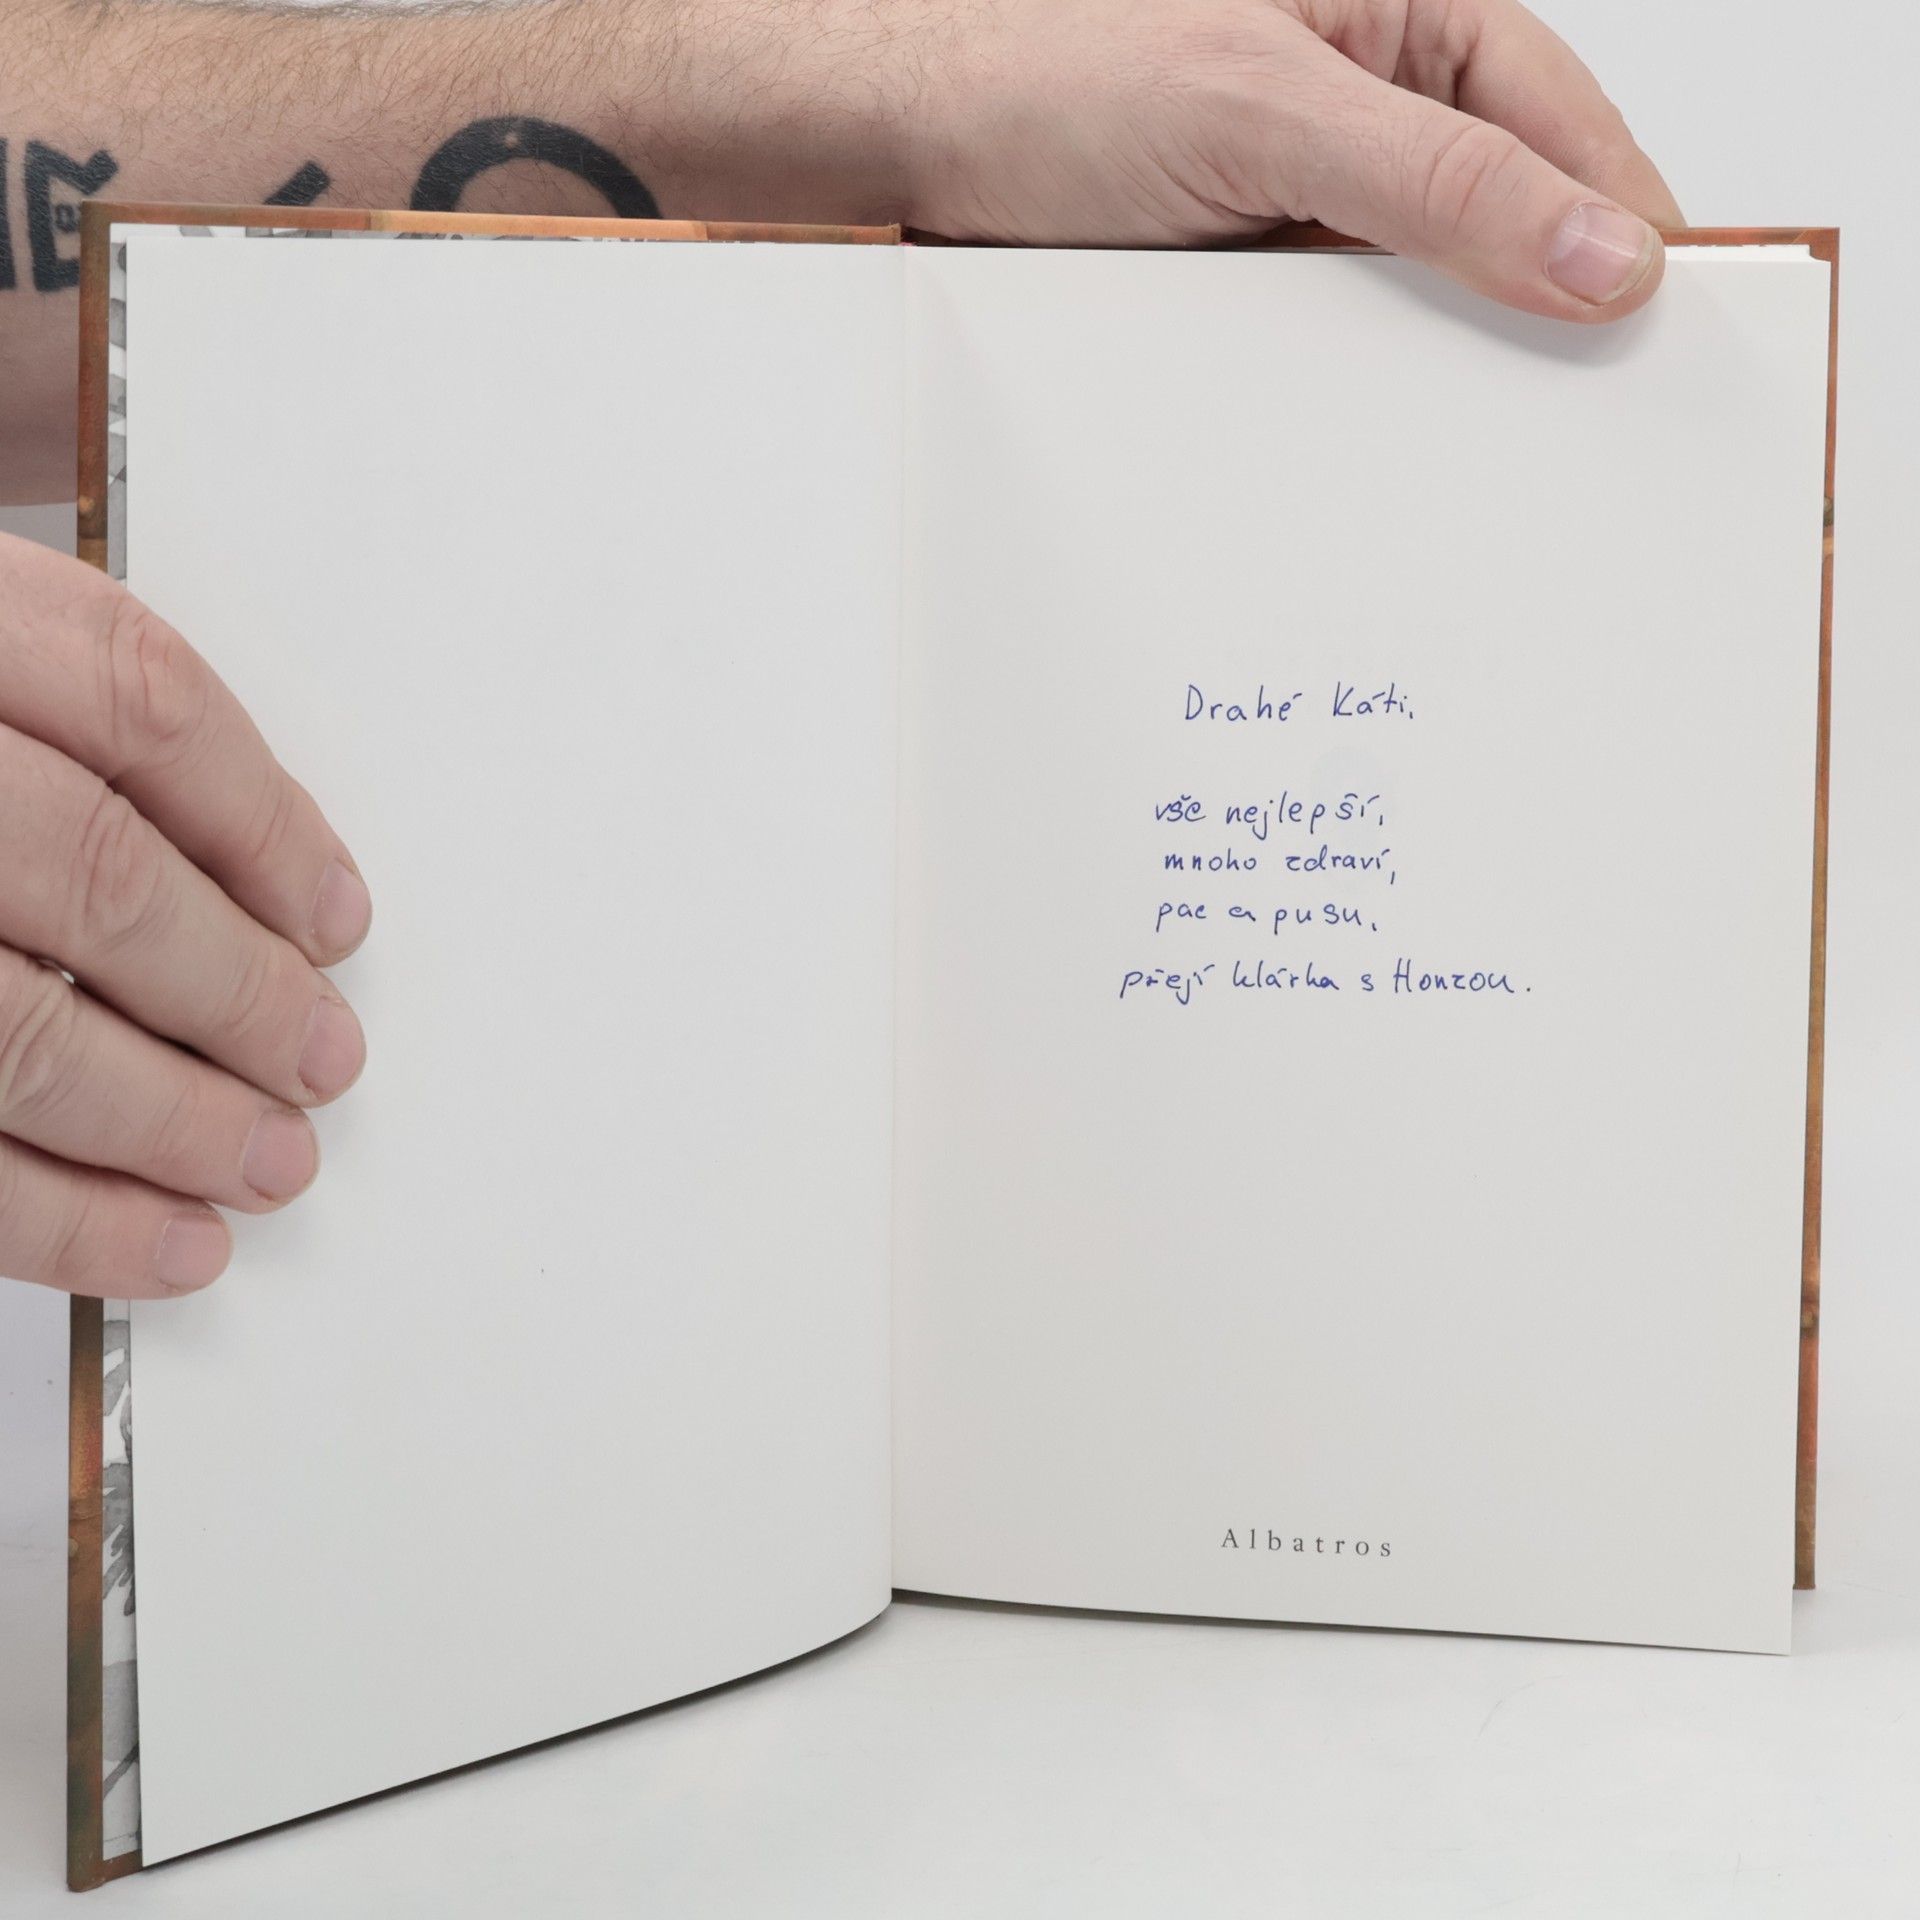 Drahé Káti,
vše nejlepší,
mnoho zdraví,
pac a pusu,
přejí Klárka s Honzou.
Albatros